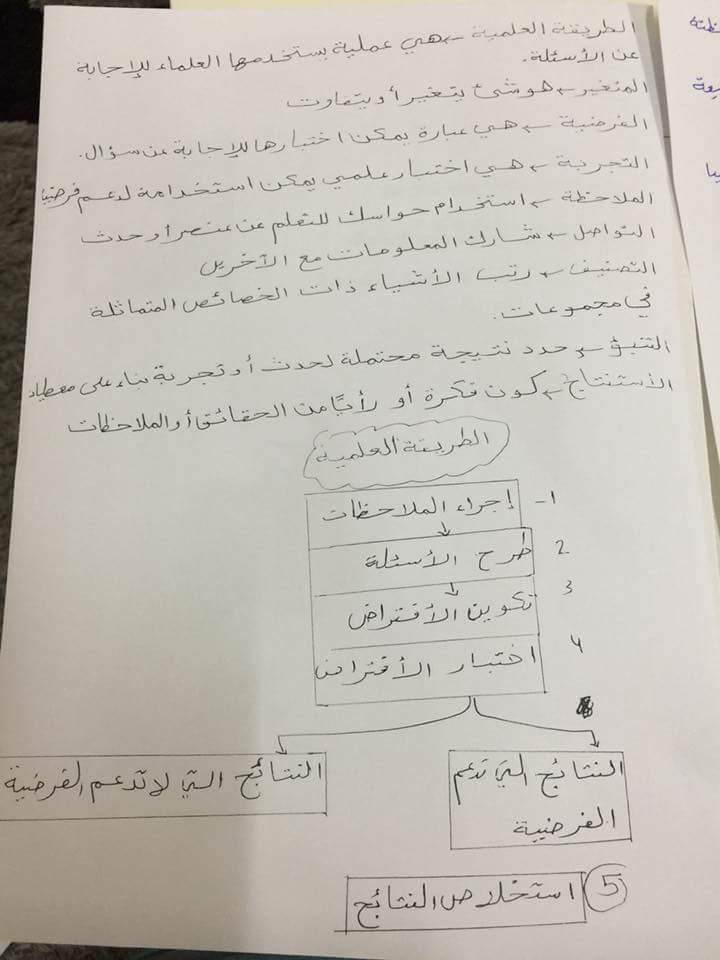 الطريقة العلمية ← هي عملية يستخدمها العلماء للإجابة
عن الأسئلة.
المتغير ← هو شئ يتغير أو يتفاوت
الفرضية ← هي عبارة يمكن اختبارها للإجابة عن سؤال.
التجربة ← هي اختبار علمي يمكن استخدامه لدعم فرضية
الملاحظة ← استخدام حواسك للتعلم عن عنصر أو حدث
التواصل ← شارك المعلومات مع الآخرين
التصنيف ← رتب الأشياء ذات الخصائص المتماثلة
في مجموعات.
التنبؤ ← حدد نتيجة محتملة لحدث أو تجربة بناء على معطيات
الأستنتاج ← كون فكرة أو رأيًا من الحقائق أو الملاحظات
الطريقة العلمية
1- إجراء الملاحظات
2 طرح الأسئلة
3 تكوين الأفتراض
4 اختبار الأفتراض
النتائج التي تدعم
الفرضية
النتائج التي لا تدعم الفرضية
5 استخلاص النتائج